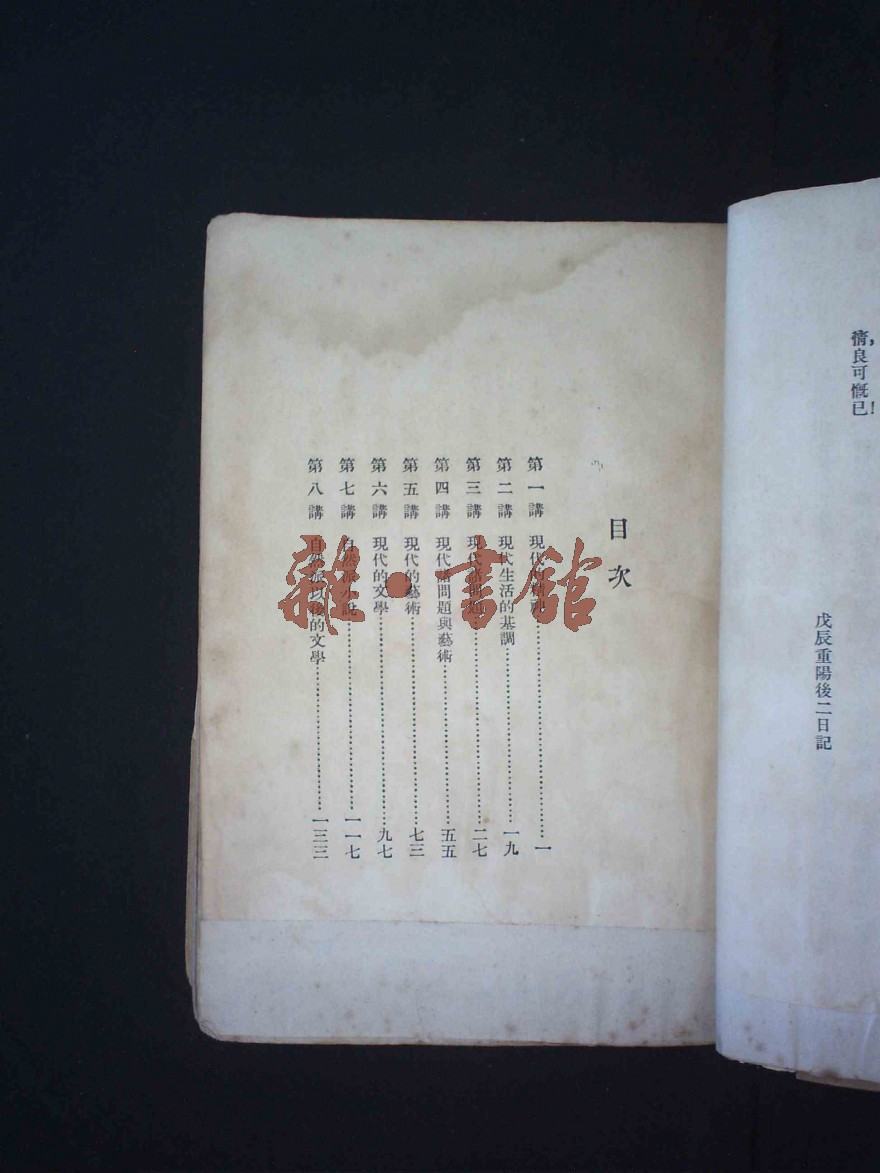 良可慨已！
戊辰重陽後二日記
目次
第一講 現代的精神……一
第二講 現代生活的基調……一九
第三講 現代諸問題……二七
第四講 現代諸問題與藝術……五五
第五講 現代的藝術……七三
第六講 現代的文學……九七
第七講 自然派小說……一一七
第八講 自然派以後的文學……一三三
雜·書館